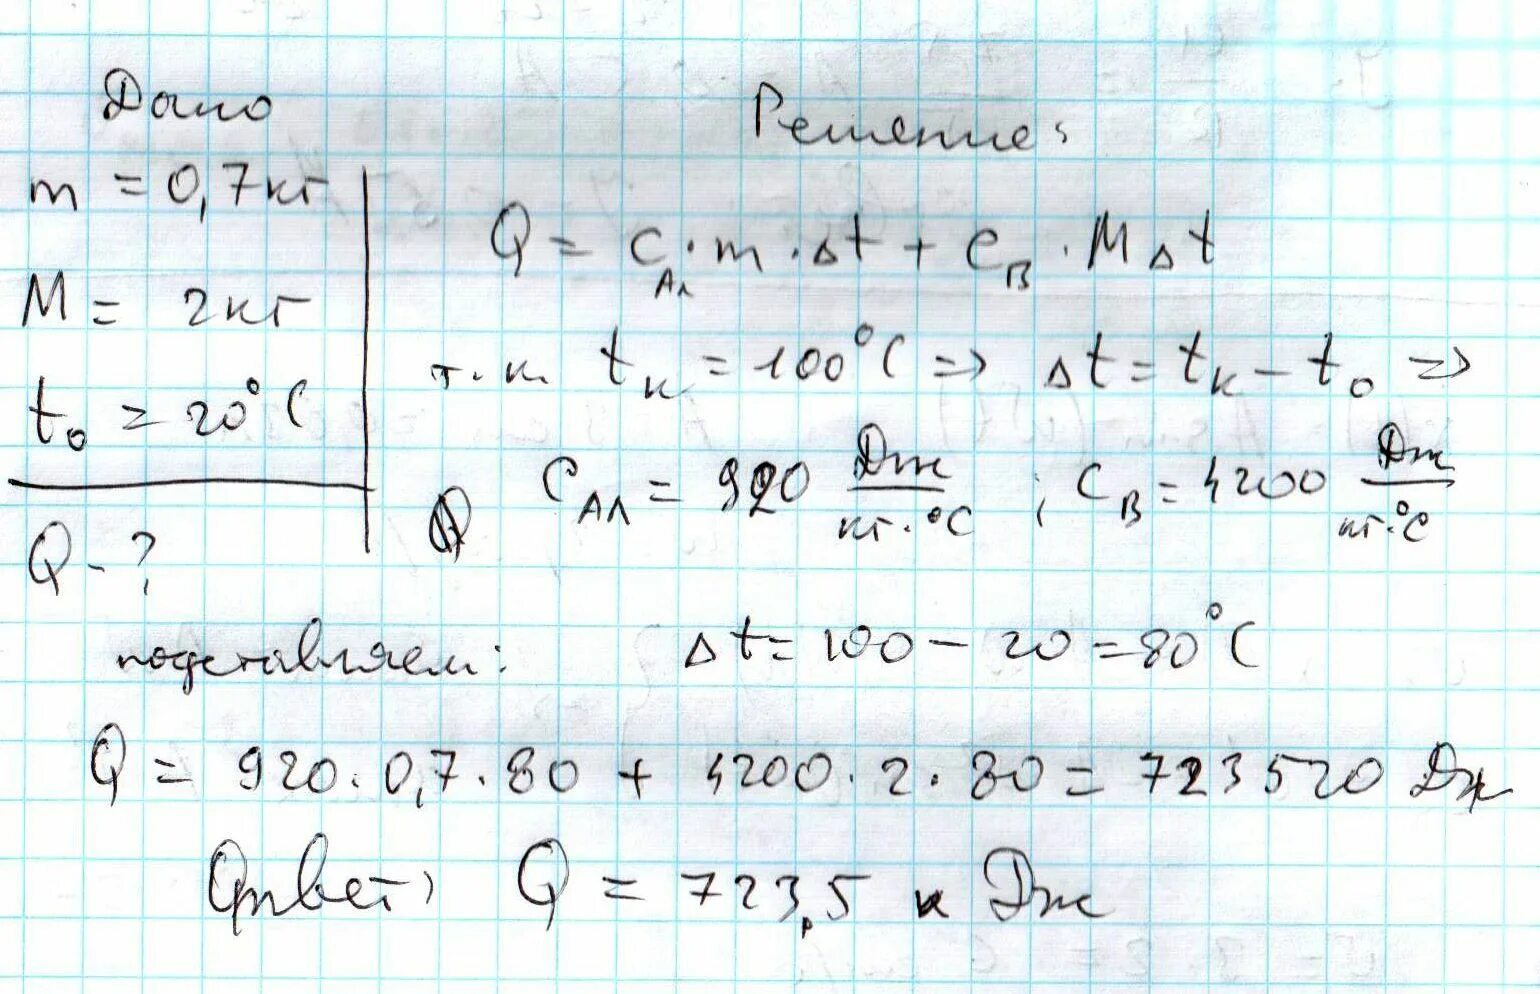 Дано
m = 0,7кг
M = 2кг
t₀ = 20°C
Q - ?
Решение:
Q = C_Ал · m · Δt + C_В · M Δt
т.к. t_к = 100°C => Δt = t_к - t₀ =>
C_АЛ = 920 Дж/кг·°C ; C_В = 4200 Дж/кг·°C
подставляем: Δt = 100 - 20 = 80°C
Q = 920 · 0,7 · 80 + 4200 · 2 · 80 = 723520 Дж
Ответ: Q = 723,5 кДж